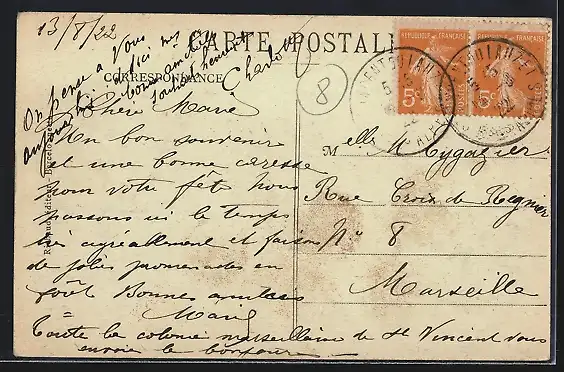 13/8/22
CARTE POSTALE
CORRESPONDANCE
On pense à vous
ici
bonne amitiés
Charlotte
8
REPUBLIQUE FRANÇAISE
5c
REPUBLIQUE FRANÇAISE
5c
Chère Marie
Un bon souvenir
et une bonne caresse
pour votre fête. Nous
passons ici le temps
très agréablement et faisons
de jolies promenades en
forêt Bonnes amitiés
Marie
Toute la colonie marseillaise de St Vincent vous
envoie le bonjour
Melle M Eygazier
Rue Croix de Regnier
No 8
Marseille